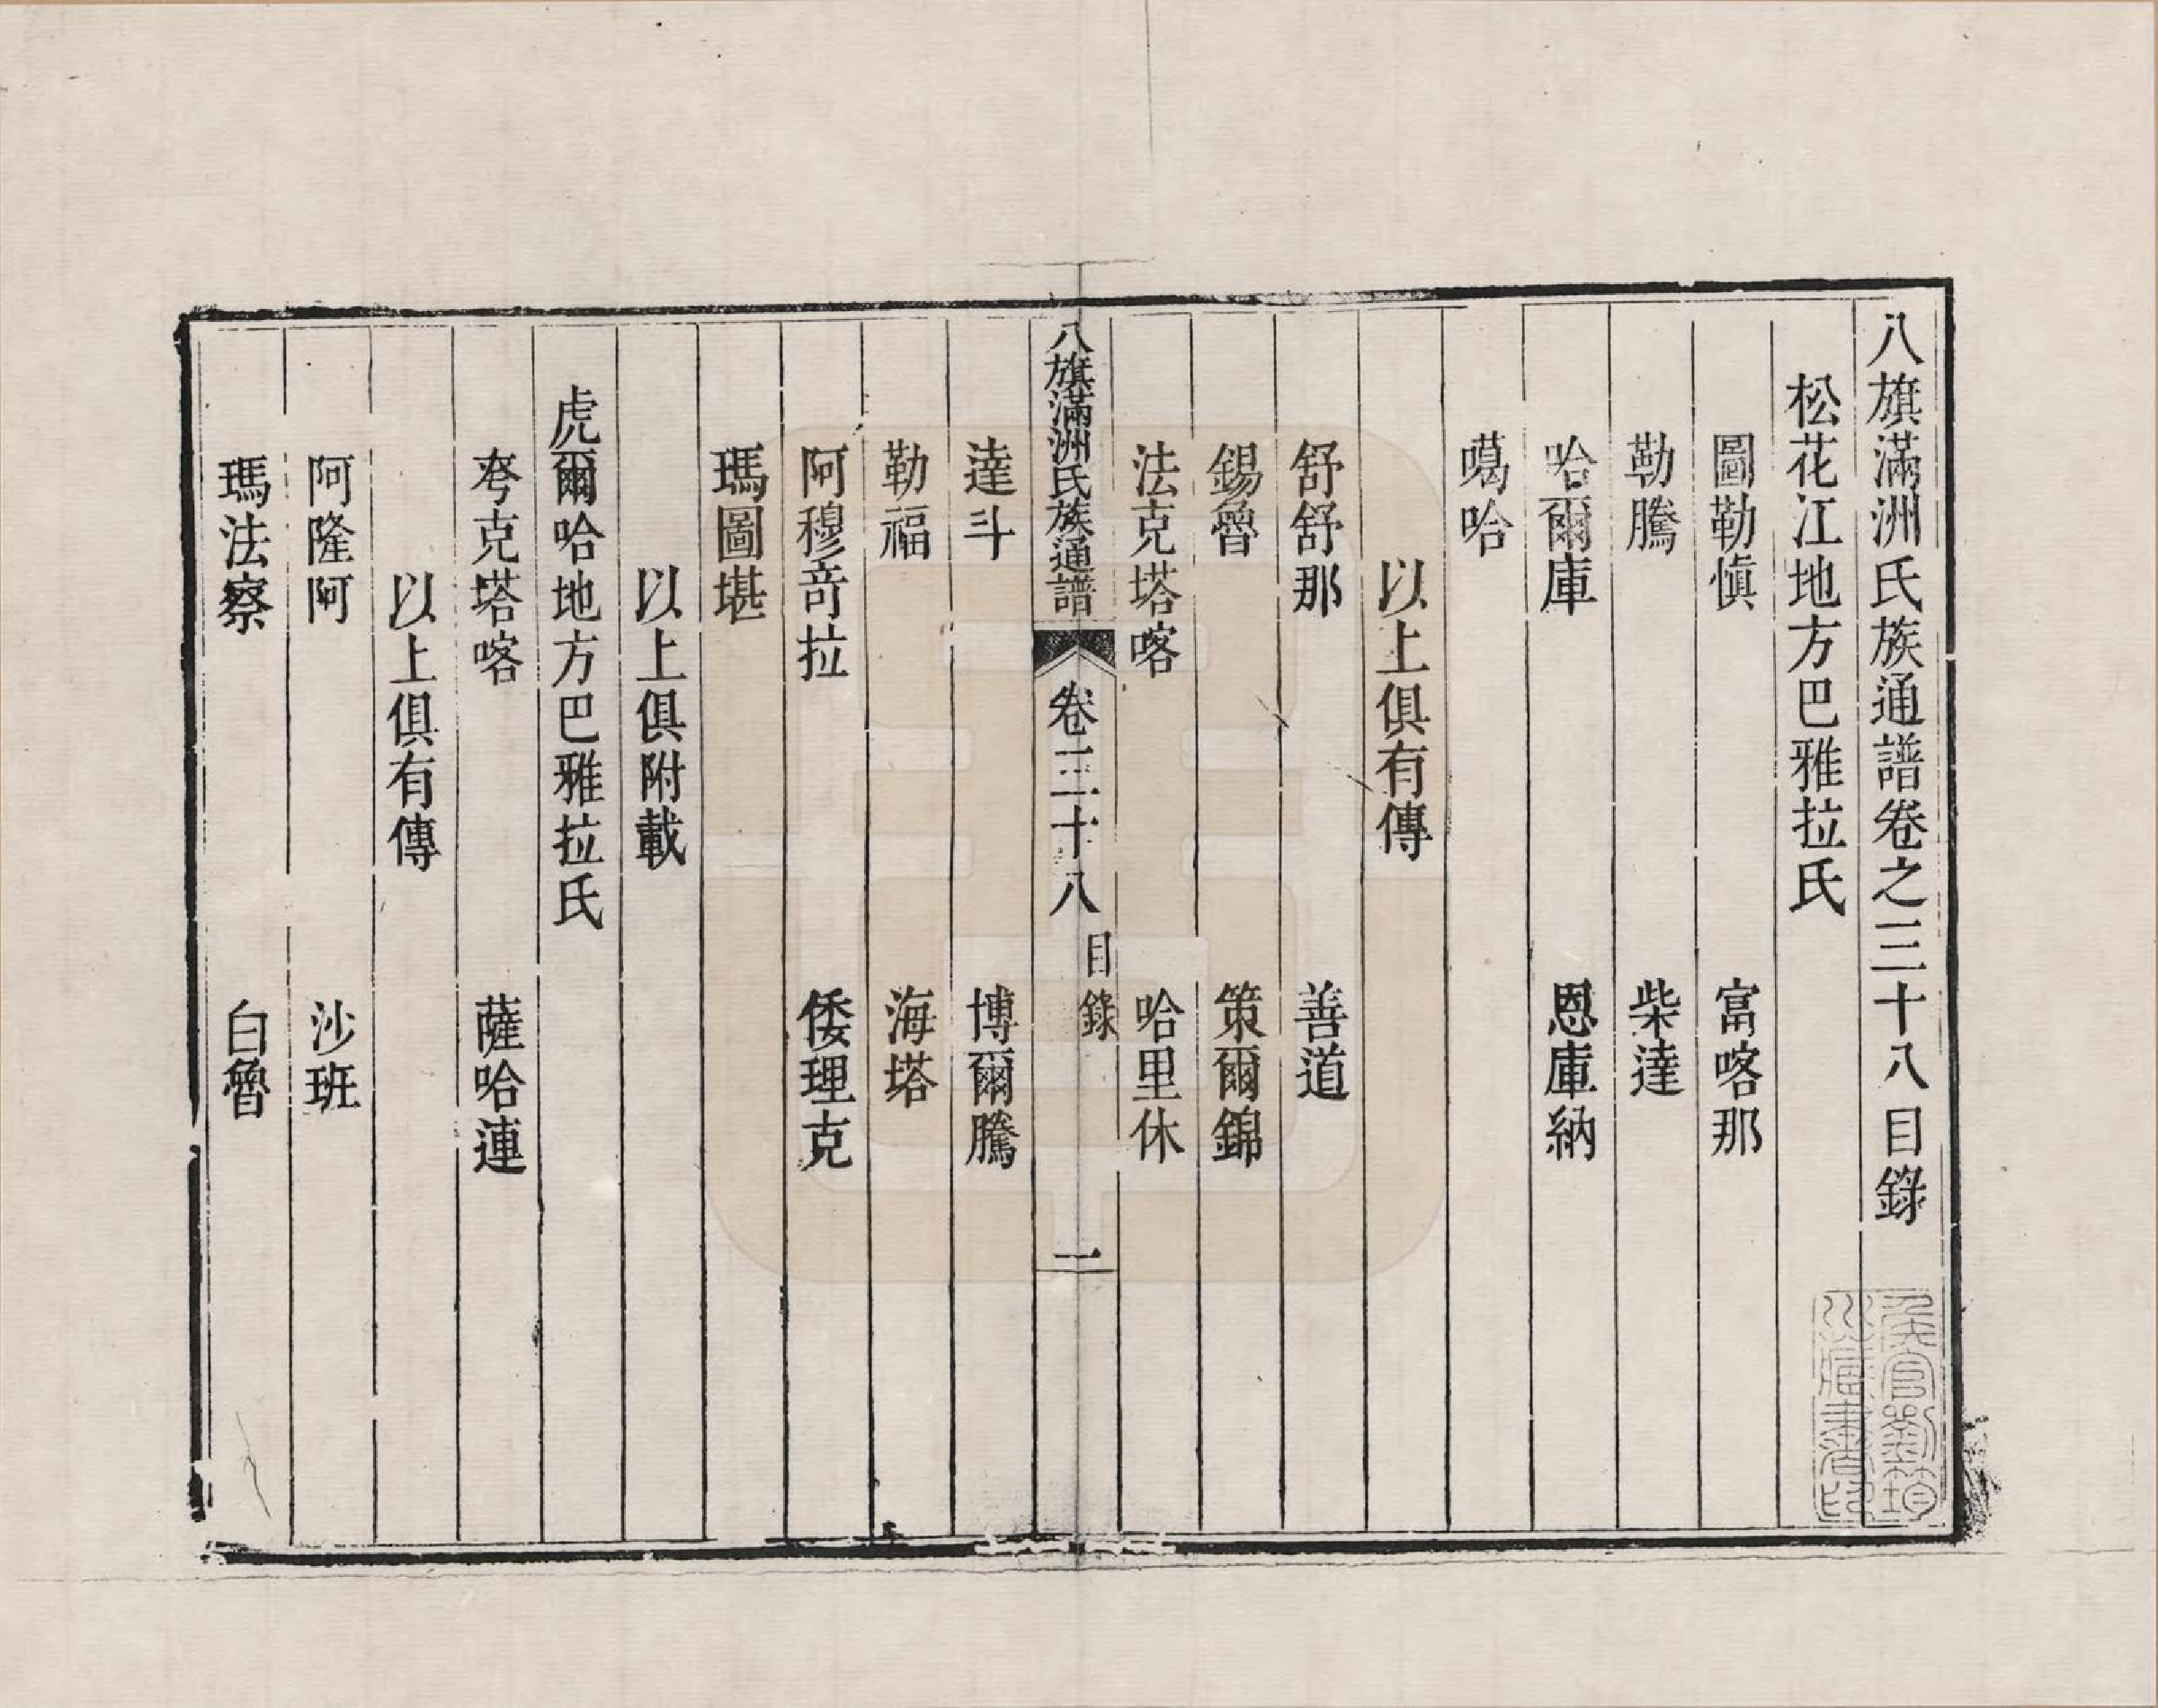 八旗滿洲氏族通譜卷之三十八目錄
松花江地方巴雅拉氏
圖勒慎　富喀那
勒騰　柴達
哈爾庫　恩庫納
噶哈
以上俱有傳
舒舒那　善道
錫魯　策爾錦
法克塔喀　哈里休
八旗滿洲氏族通譜　卷三十八　目錄　一
達斗　博爾騰
勒福　海塔
阿穆竒拉　倭理克
瑪圖堪
以上俱附載
虎爾哈地方巴雅拉氏
夸克塔喀　薩哈連
以上俱有傳
阿隆阿　沙班
瑪法察　白魯
侯官劉筠
川藏書印